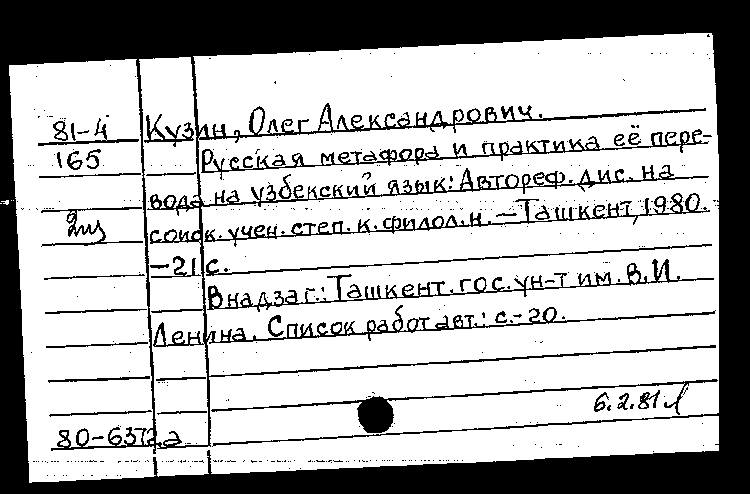 81-4 Кузин, Олег Александрович.
165 Русская метафора и практика её пере-
вода на узбекский язык: Автореф. дис. на
соиск. учен. степ. к. филол. н. – Ташкент, 1980.
– 21 с.
В надзаг.: Ташкент. гос. ун-т им. В.И.
Ленина. Список работ авт.: с.-20.
6.2.81
80-6372а